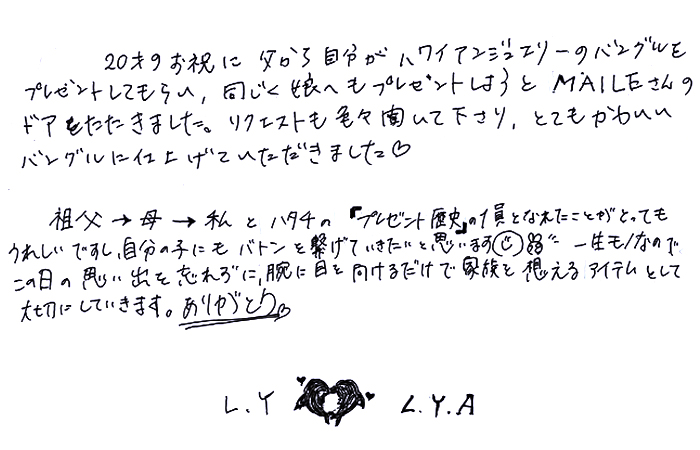 20才のお祝に父から自分がハワイアンジュエリーのバングルを
プレゼントしてもらい、同じく娘へもプレゼントしようとMAILEさんの
ドアをたたきました。リクエストも色々聞いて下さり、とてもかわいい
バングルに仕上げていただきました♡
祖父→母→私とハタチの『プレゼント歴史』の1員となれたことがとっても
うれしいですし、自分の子にもバトンを繋げていきたいと思います 一生モノなので
この日の思い出を忘れずに、腕に目を向けるだけで家族を想えるアイテムとして
大切にしていきます。ありがとう♡
L.Y L.Y.A